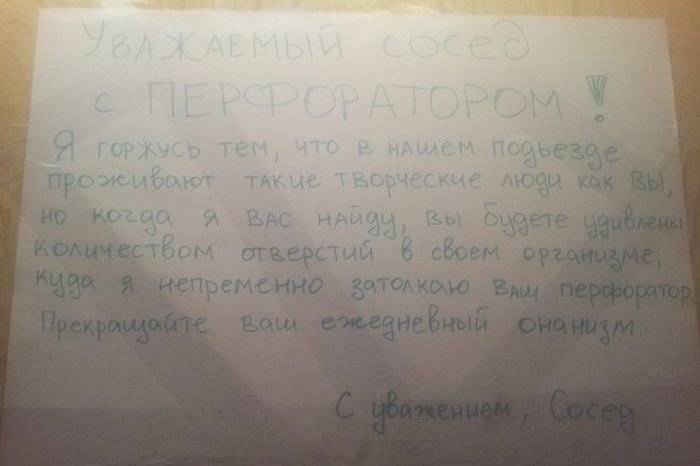 Уважаемый сосед
с ПЕРФОРАТОРОМ!
Я горжусь тем, что в нашем подьезде
проживают такие творческие люди как вы,
но когда я вас найду, вы будете удивлены
количеством отверстий в своем организме,
куда я непременно затолкаю ваш перфоратор
Прекращайте ваш ежедневный онанизм.
С уважением, Сосед.